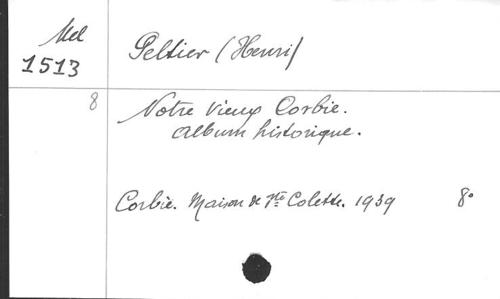 Mel
1513
Peltier (Henri)
8
Notre vieux Corbie.
Album historique.
Corbie. Maison de Ste Colette. 1939 8º